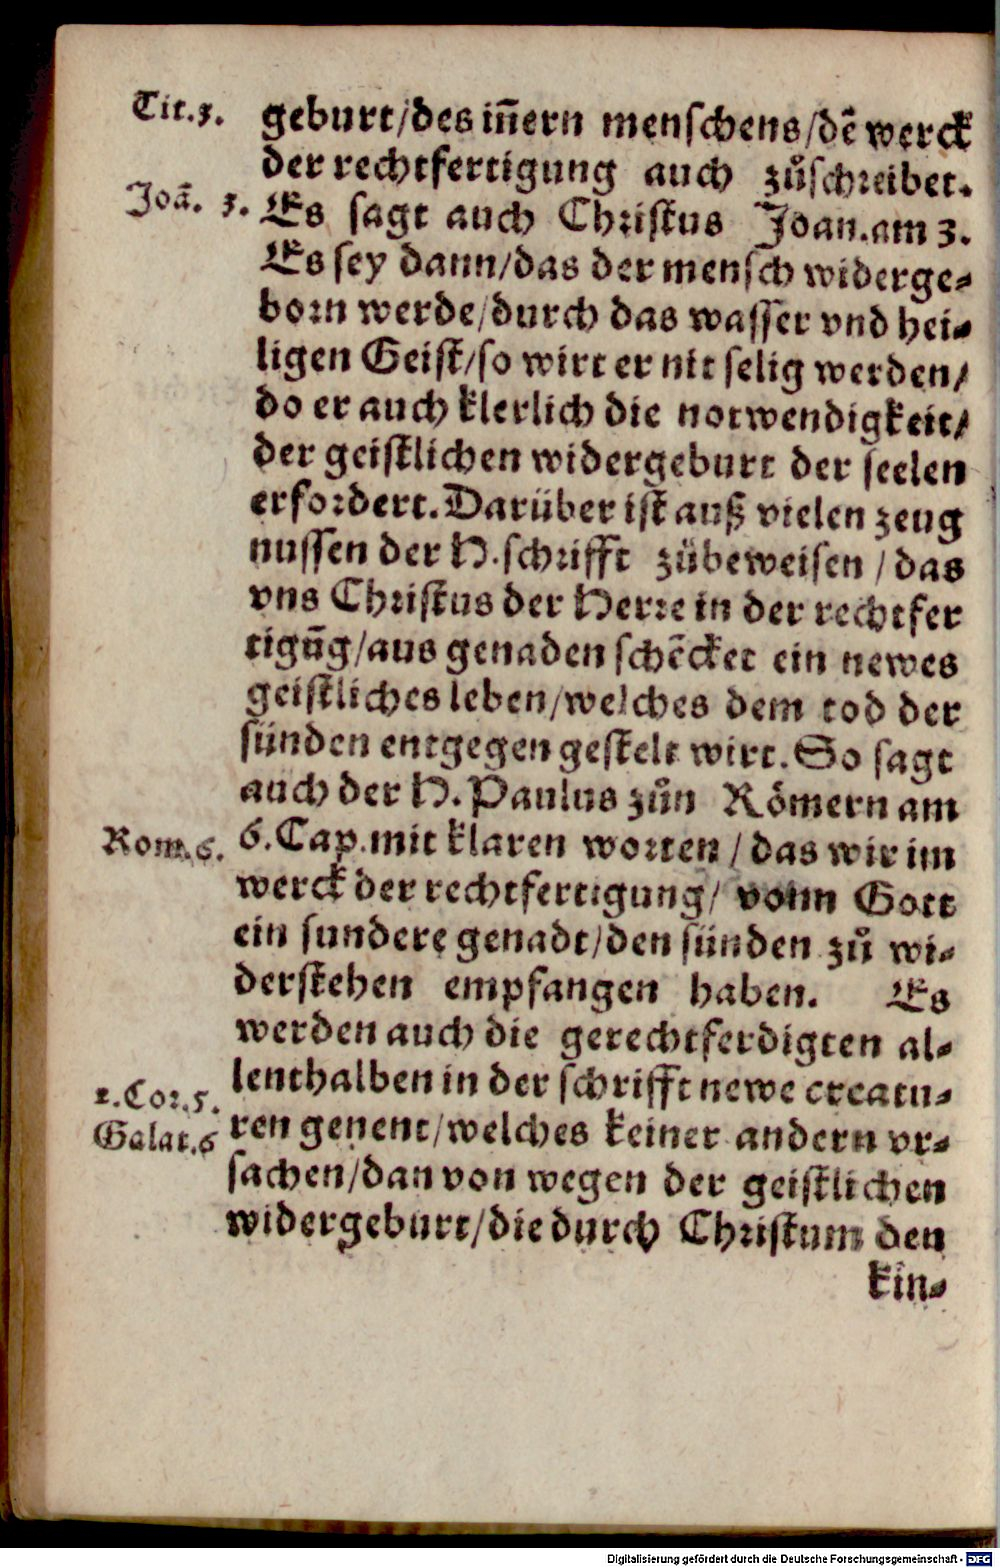 Tit.3.
geburt/des iñern menschens/dē werck
der rechtfertigung auch zůschreibet.
Joā. 3.
Es sagt auch Christus Joan.am 3.
Es sey dann/das der mensch widerge-
born werde/durch das wasser vnd hei-
ligen Geist/so wirt er nit selig werden/
do er auch klerlich die notwendigkeit/
der geistlichen widergeburt der seelen
erfordert.Darüber ist auß vielen zeug
nussen der H.schrifft zübeweisen/das
vns Christus der Herre in der rechtfer
tigūg/aus genaden schēcket ein newes
geistliches leben/welches dem tod der
sünden entgegen gestelt wirt.So sagt
auch der H.Paulus zůn Römern am
Rom.6.
6.Cap.mit klaren worten/das wir im
werck der rechtfertigung/ vonn Gott
ein sundere genadt/den sünden zů wi-
derstehen empfangen haben. Es
werden auch die gerechtferdigten al-
lenthalben in der schrifft newe creatu-
2.Cor.5.
Galat.6
ren genent/welches keiner andern vr-
sachen/dan von wegen der geistlichen
widergeburt/die durch Christum den
kin-
Digitalisierung gefördert durch die Deutsche Forschungsgemeinschaft - DFG